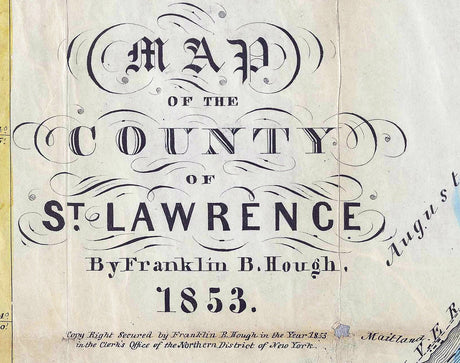 MAP
OF THE
COUNTY
OF
ST. LAWRENCE
By Franklin B. Hough.
1853.
Copy Right Secured by Franklin B. Hough in the Year 1853
in the Clerk's Office of the Northern District of New York.
August
Maitland